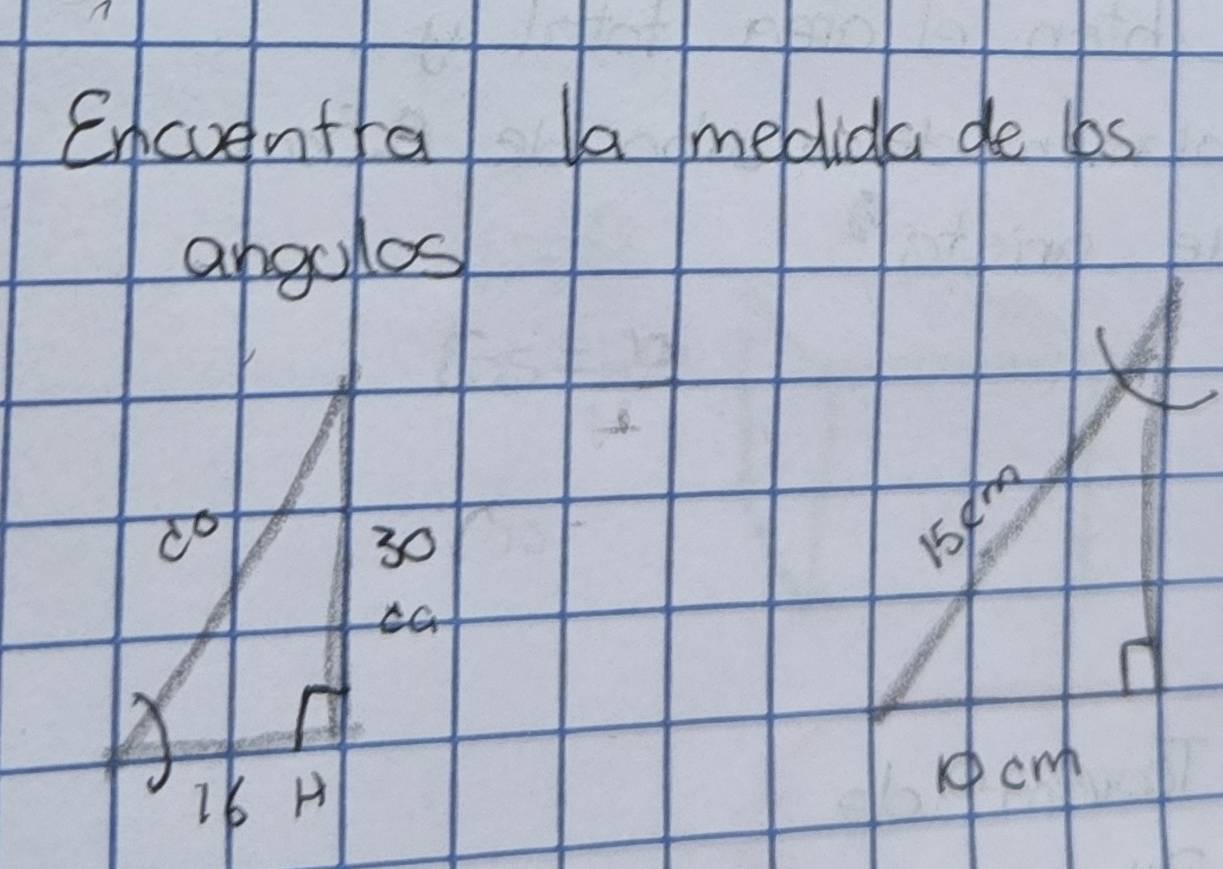 Encuentra la medida de los
angulos
co
30
ca
16 H
15cm
10 cm